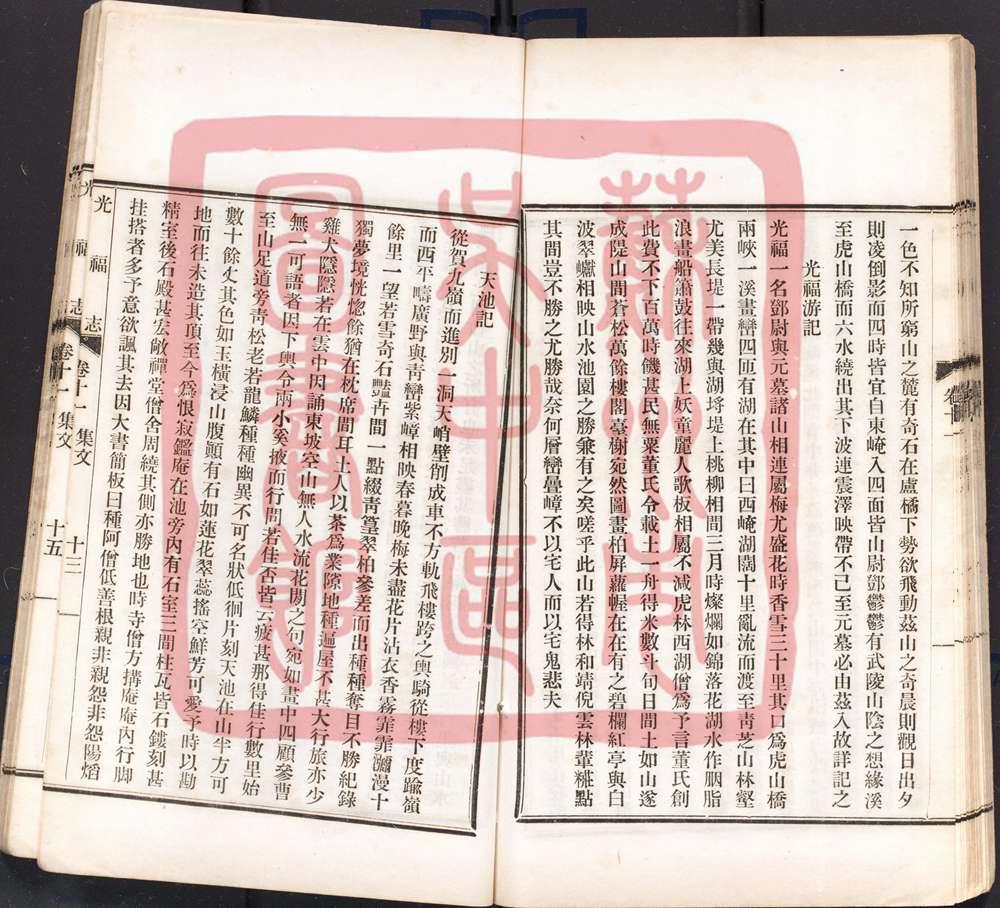 一色不知所窮山之麓有奇石在盧橘下勢欲飛動茲山之奇晨則觀日出夕
則凌倒影而四時皆宜自東崦入四面皆山尉鄧鬱鬱有武陵山陰之想緣溪
至虎山橋而六水繞出其下波連震澤映帶不已至元墓必由茲入故詳記之
光福游記
光福一名鄧尉與元墓諸山相連屬梅尤盛花時香雪三十里其口爲虎山橋
兩峽一溪畫巒四匝有湖在其中曰西崦湖闊十里亂流而渡至靑芝山林壑
尤美長堤一帶幾與湖埒堤上桃柳相間三月時燦爛如錦落花湖水作胭脂
浪畫船簫鼓往來湖上妖童麗人歌板相屬不減虎林西湖僧爲予言董氏創
此費不下百萬時饑甚民無粟董氏令載土一舟得米數斗旬日間土如山遂
成隄山間蒼松萬餘樓閣臺榭宛然圖畫柏屏蘿幄在在有之碧欄紅亭與白
波翠巘相映山水池園之勝兼有之矣嗟乎此山若得林和靖倪雲林輩糚點
其間豈不勝之尤勝哉奈何層巒疊嶂不以宅人而以宅鬼悲夫
天池記
從賀九嶺而進別一洞天峭壁削成車不方軌飛樓跨之輿騎從樓下度踰嶺
而西平疇廣野與靑巒紫嶂相映春暮晚梅未盡花片沾衣香霧霏霏瀰漫十
餘里一望若雪奇石豔卉間一點綴靑篁翠柏參差而出種種奪目不勝紀錄
獨夢境恍惚餘猶在枕席間耳土人以茶爲業隙地種遍屋不甚大行旅亦少
雞犬隱隱若在雲中因誦東坡空山無人水流花開之句宛如畫中四顧參曹
無一可語者因下輿令兩小奚掖而行問若佳否皆云疲甚那得佳行數里始
至山足道旁靑松老若龍鱗種種幽異不可名狀低徊片刻天池在山半方可
數十餘丈其色如玉橫浸山腹巔有石如蓮花翠蕊搖空鮮芳可愛予時以勘
地而往未造其頂至今爲恨寂鑑庵在池旁內有石室三間柱瓦皆石鏤刻甚
精室後石殿甚宏敞禪堂僧舍周繞其側亦勝地也時寺僧方搆庵庵內行脚
挂搭者多予意欲諷其去因大書簡板曰種阿僧低善根親非親怨非怨陽熖
光福志 卷十一 集文 十三
卷十一 集文 十五